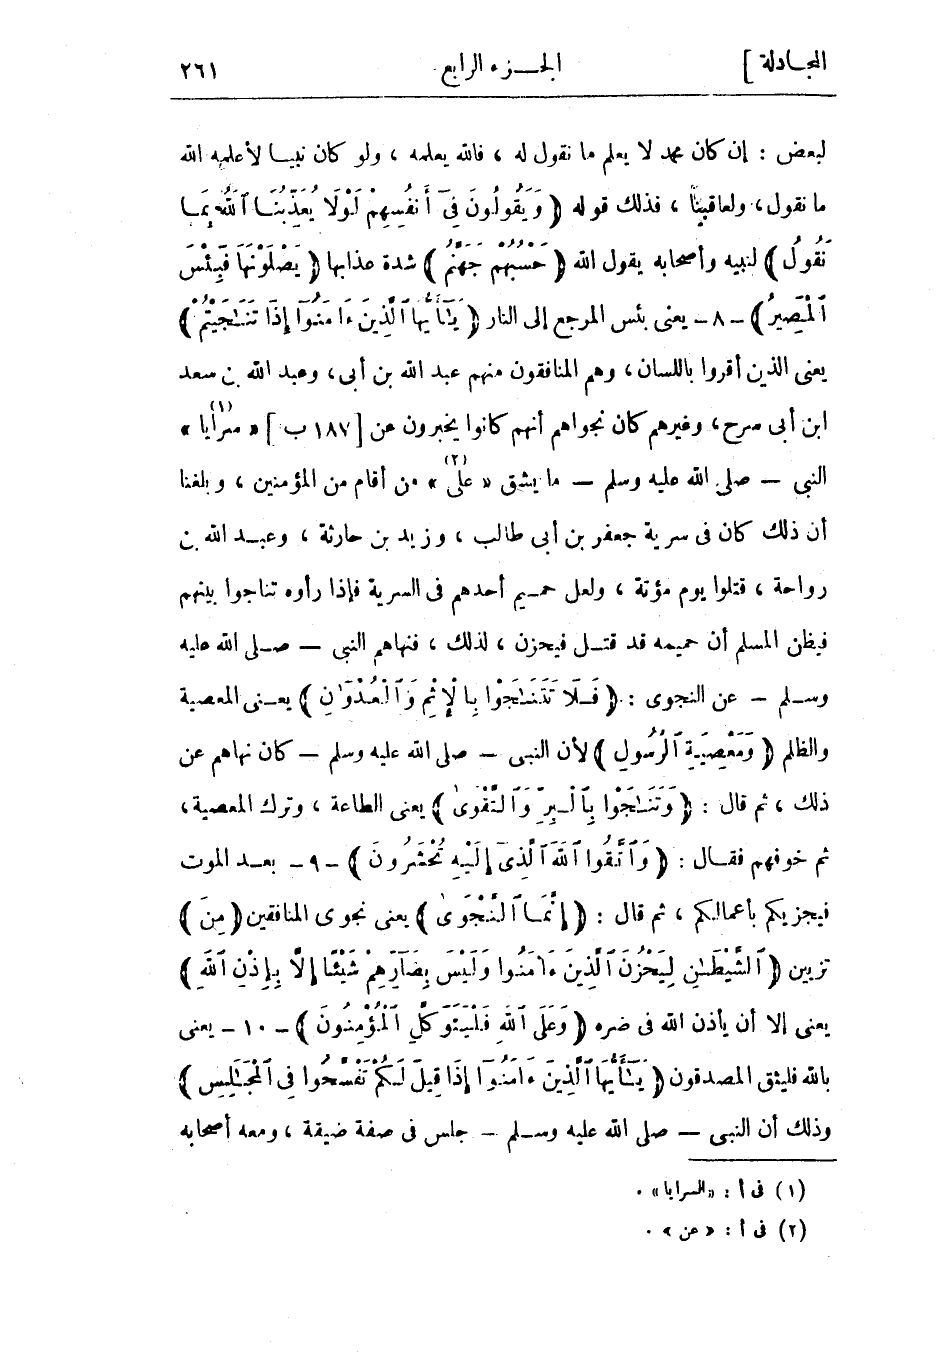 المجادلة ] الجزء الرابع ٢٦١
لبعض : إن كان محمد لا يعلم ما نقول له ، فالله يعلمه ، ولو كان نبيا لأعلمه الله
ما نقول، ولعاقبنا ، فذلك قوله ﴿ وَيَقُولُونَ فِىٓ أَنفُسِهِمْ لَوْلَا يُعَذِّبُنَا ٱللَّهُ بِمَا
نَقُولُ ﴾ لنبيه وأصحابه يقول الله ﴿ حَسْبُهُمْ جَهَنَّمُ ﴾ شدة عذابها ﴿ يَصْلَوْنَهَا فَبِئْسَ
ٱلْمَصِيرُ ﴾ ـ ٨ ـ يعنى بئس المرجع إلى النار ﴿ يَـٰٓأَيُّهَا ٱلَّذِينَ ءَامَنُوٓا إِذَا تَنَـٰجَيْتُمْ ﴾
يعنى الذين أقروا باللسان ، وهم المنافقون منهم عبد الله بن أبى ، وعبد الله بن سعد
ابن أبى سرح، وغيرهم كان نجواهم أنهم كانوا يخبرون عن [ ١٨٧ ب ] « سرايا (١) »
النبى — صلى الله عليه وسلم — ما يشق « على (٢) » من أقام من المؤمنين ، وبلغنا
أن ذلك كان فى سرية جعفر بن أبى طالب ، وزيد بن حارثة ، وعبد الله بن
رواحة ، قتلوا يوم مؤتة ، ولعل حميم أحدهم فى السرية فإذا رأوه تناجوا بينهم
فيظن المسلم أن حميمه قد قتل فيحزن ، لذلك ، فنهاهم النبى — صلى الله عليه
وسلم — عن النجوى : ﴿ فَلَا تَتَنَـٰجَوْا بِالْإِثْمِ وَٱلْعُدْوَٰنِ ﴾ يعنى المعصية
والظلم ﴿ وَمَعْصِيَةِ ٱلرَّسُولِ ﴾ لأن النبى — صلى الله عليه وسلم — كان نهاهم عن
ذلك ، ثم قال : ﴿ وَتَنَـٰجَوْا بِٱلْبِرِّ وَٱلتَّقْوَىٰ ﴾ يعنى الطاعة ، وترك المعصية،
ثم خوفهم فقال : ﴿ وَٱتَّقُوا ٱللَّهَ ٱلَّذِىٓ إِلَيْهِ تُحْشَرُونَ ﴾ ـ ٩ ـ بعد الموت
فيجزيكم بأعمالكم ، ثم قال : ﴿ إِنَّمَا ٱلنَّجْوَىٰ ﴾ يعنى نجوى المنافقين ﴿ مِنَ ﴾
تزيين ﴿ ٱلشَّيْطَـٰنِ لِيَحْزُنَ ٱلَّذِينَ ءَامَنُوا وَلَيْسَ بِضَآرِّهِمْ شَيْئًا إِلَّا بِإِذْنِ ٱللَّهِ ﴾
يعنى إلا أن يأذن الله فى ضره ﴿ وَعَلَى ٱللَّهِ فَلْيَتَوَكَّلِ ٱلْمُؤْمِنُونَ ﴾ ـ ١٠ ـ يعنى
بالله فليثق المصدقون ﴿ يَـٰٓأَيُّهَا ٱلَّذِينَ ءَامَنُوٓا إِذَا قِيلَ لَكُمْ تَفَسَّحُوا فِى ٱلْمَجَـٰلِسِ ﴾
وذلك أن النبى — صلى الله عليه وسلم — جلس فى صفة ضيقة ، ومعه أصحابه
(١) فى أ : «السرايا» .
(٢) فى أ : « عن » .